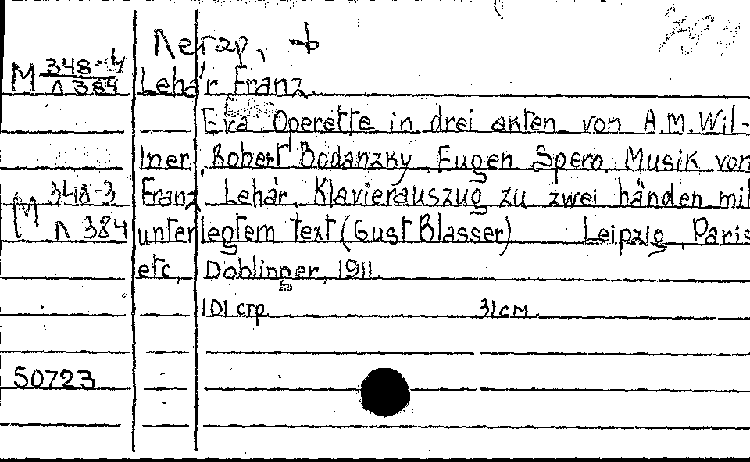 Легар, Ф
M 348-4 Lehár Franz.
Л 384
Eva Operette in drei akten von A.M. Wil-
lner, Robert Bodanzky, Eugen Spero. Musik von
M 348-3 Franz Lehár. Klavierauszug zu zwei händen mit
Л 384 unterlegtem text (Gust Blasser) Leipzig, Paris
etc, Doblinger, 1911.
101 стр. 31 см.
50723